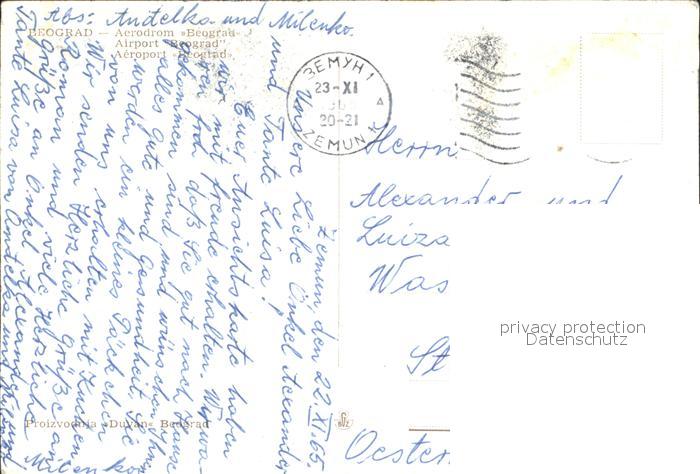 Abs: Anđelka und Milenko.
BEOGRAD — Aerodrom »Beograd«
Airport "Beograd"
Aéroport »Beograd«
ЗЕМУН 1
23-XI
20-21
ZEMUN
Zemun, den 22.XI.66.
Unsere Liebe Onkel Alexander
und Tante Luisa!
Euer Ansichtskarte haben
wir mit freude erhalten. Wir wa-
ren froh daß Sie gut nach Hause
gekommen sind und wünschen Ihnen
alles gute und gesundheit. Sie
werden ein kleines Päckchen
von uns erhalten mit Kuchen
Wir senden Herzliche Grüße an
Roman und viele Herzliche
Grüße an Onkel Alexander und
Tante Luisa von Anđelka und
Milenko
Herrn
Alexander und
Luiza
Was
St
Oester
privacy protection
Datenschutz
Proizvodnja »Duvan« Beograd